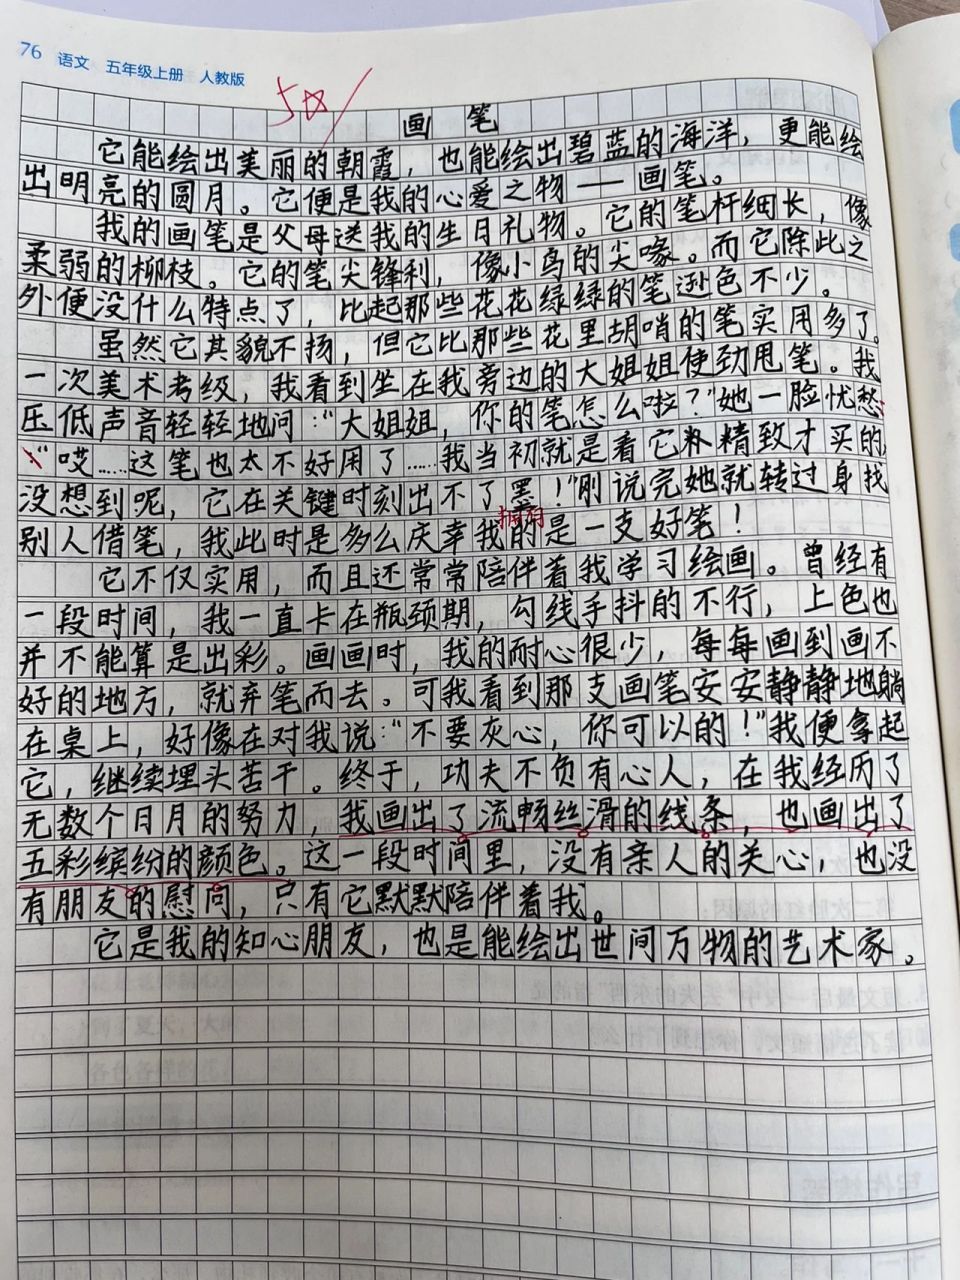 76 语文 五年级上册 人教版
画笔
它能绘出美丽的朝霞，也能绘出碧蓝的海洋，更能绘
出明亮的圆月。它便是我的心爱之物——画笔。
我的画笔是父母送我的生日礼物。它的笔杆细长，像
柔弱的柳枝。它的笔尖锋利，像小鸟的尖喙。而它除此之
外便没什么特点了，比起那些花花绿绿的笔逊色不少。
虽然它其貌不扬，但它比那些花里胡哨的笔实用多了。
一次美术考级，我看到坐在我旁边的大姐姐使劲甩笔。我
压低声音轻轻地问："大姐姐，你的笔怎么啦？"她一脸忧愁：
："哎……这笔也太不好用了……我当初就是看它外精致才买的，
没想到呢，它在关键时刻出不了墨！"刚说完她就转过身找
拥有
别人借笔，我此时是多么庆幸我的是一支好笔！
它不仅实用，而且还常常陪伴着我学习绘画。曾经有
一段时间，我一直卡在瓶颈期，勾线手抖的不行，上色也
并不能算是出彩。画画时，我的耐心很少，每每画到画不
好的地方，就弃笔而去。可我看到那支画笔安安静静地躺
在桌上，好像在对我说："不要灰心，你可以的！"我便拿起
它，继续埋头苦干。终于，功夫不负有心人，在我经历了
无数个日月的努力，我画出了流畅丝滑的线条，也画出了
五彩缤纷的颜色。这一段时间里，没有亲人的关心，也没
有朋友的慰问，只有它默默陪伴着我。
它是我的知心朋友，也是能绘出世间万物的艺术家。